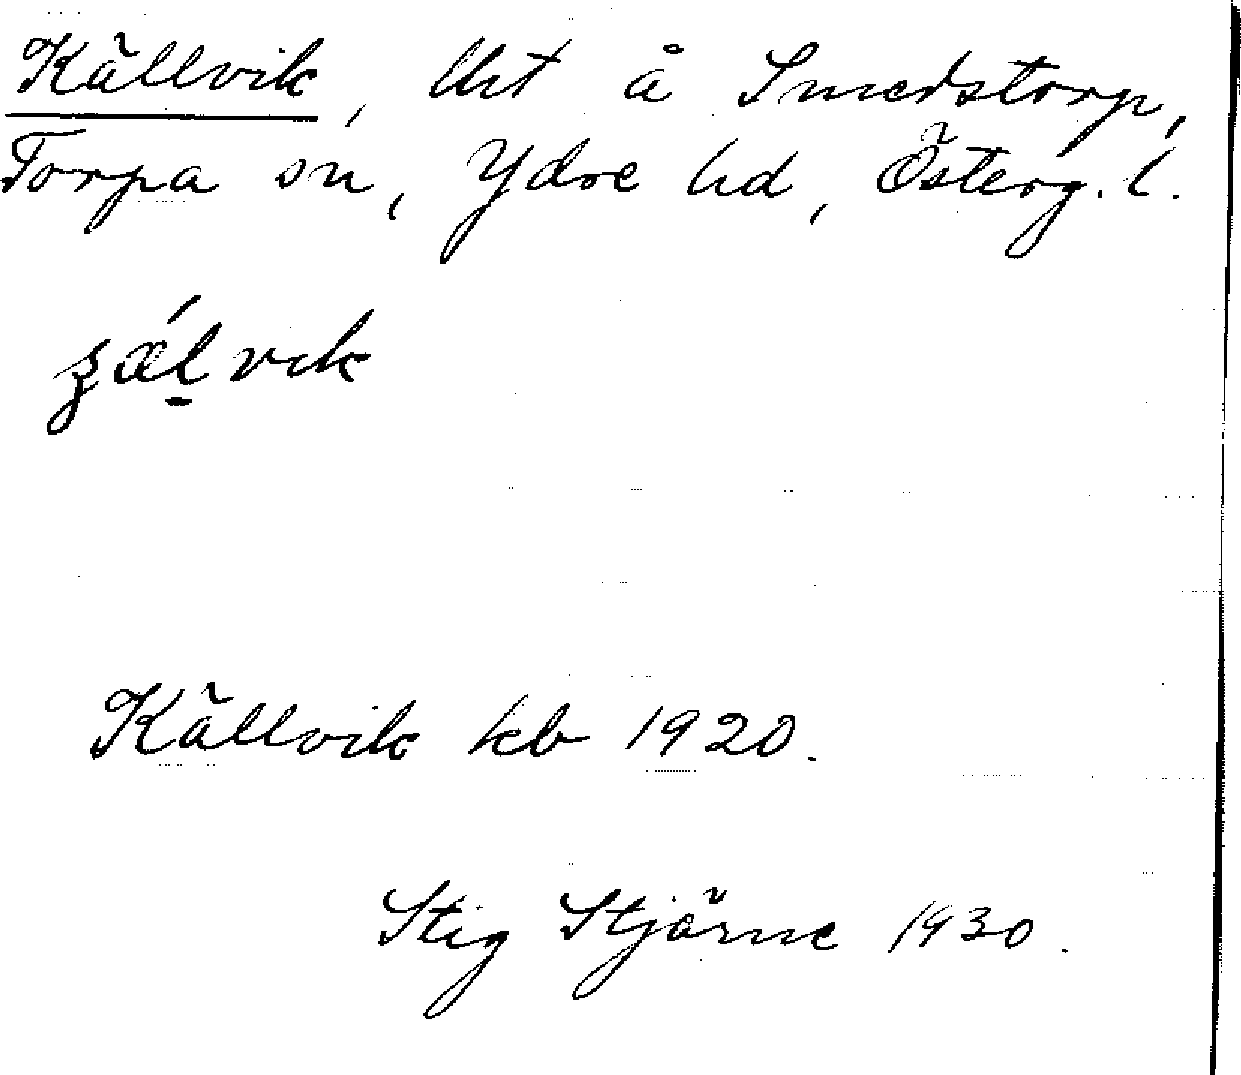 Källvik, lht å Smedstorp,
Torpa sn, Ydre hd, Österg. l.
Källvik kb 1920.
Stig Stjärne 1930.